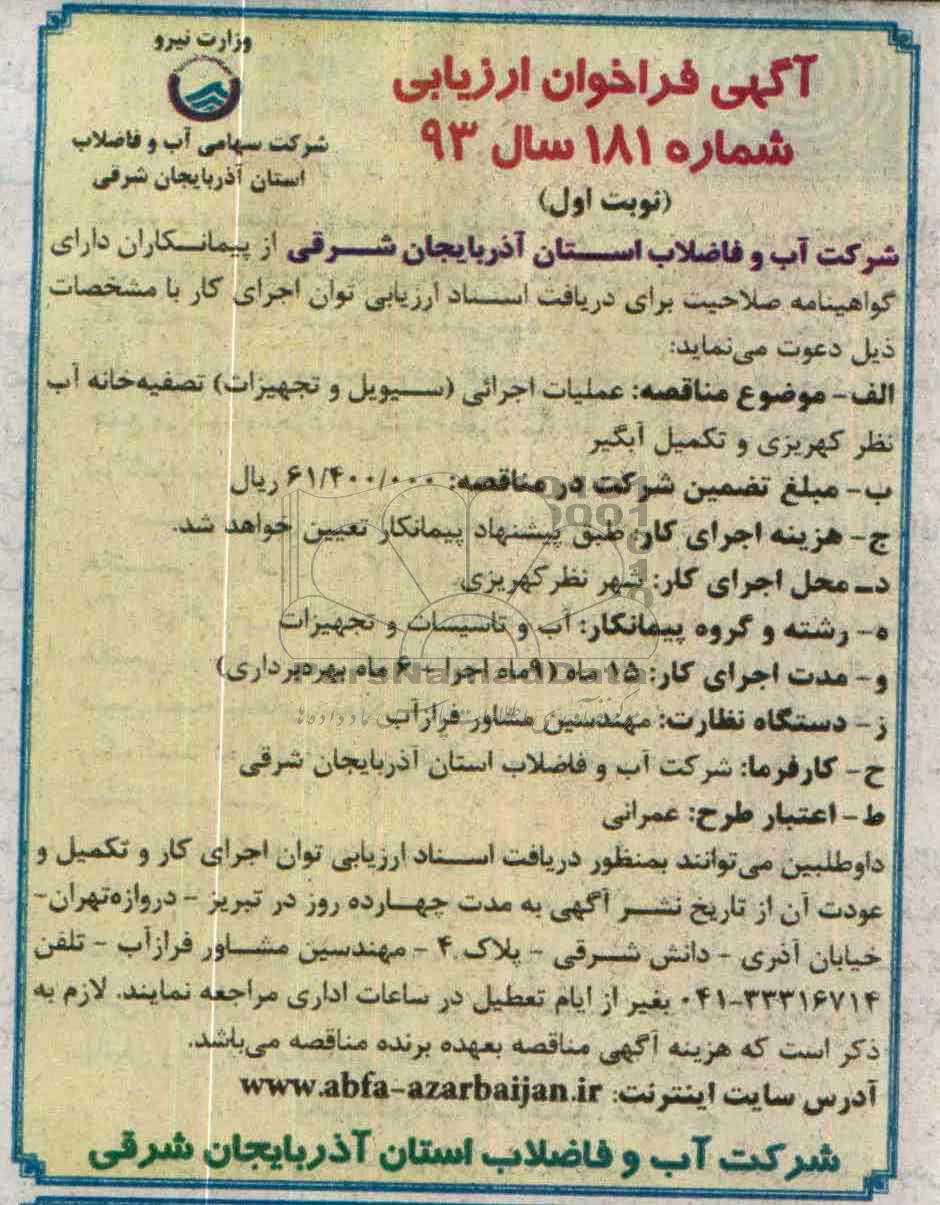 وزارت نیرو
شرکت سهامی آب و فاضلاب
استان آذربایجان شرقی
آگهی فراخوان ارزیابی
شماره ۱۸۱ سال ۹۳
(نوبت اول)
شرکت آب و فاضلاب استان آذربایجان شرقی از پیمانکاران دارای
گواهینامه صلاحیت برای دریافت اسناد ارزیابی توان اجرای کار با مشخصات
ذیل دعوت می‌نماید:
الف- موضوع مناقصه: عملیات اجرائی (سیویل و تجهیزات) تصفیه‌خانه آب
نظر کهریزی و تکمیل آبگیر
ب- مبلغ تضمین شرکت در مناقصه: ۶۱/۴۰۰/۰۰۰ ریال
ج- هزینه اجرای کار: طبق پیشنهاد پیمانکار تعیین خواهد شد.
د- محل اجرای کار: شهر نظرکهریزی
ه- رشته و گروه پیمانکار: آب و تاسیسات و تجهیزات
و- مدت اجرای کار: ۱۵ ماه (۹ماه اجرا - ۶ ماه بهره‌برداری)
ParsNamadData
ز- دستگاه نظارت: مهندسین مشاور فرازآب
ح- کارفرما: شرکت آب و فاضلاب استان آذربایجان شرقی
ط- اعتبار طرح: عمرانی
داوطلبین می‌توانند بمنظور دریافت اسناد ارزیابی توان اجرای کار و تکمیل و
عودت آن از تاریخ نشر آگهی به مدت چهارده روز در تبریز - دروازه‌تهران-
خیابان آذری - دانش شرقی - پلاک ۴ - مهندسین مشاور فرازآب - تلفن
۰۴۱-۳۳۳۱۶۷۱۴ بغیر از ایام تعطیل در ساعات اداری مراجعه نمایند. لازم به
ذکر است که هزینه آگهی مناقصه بعهده برنده مناقصه می‌باشد.
آدرس سایت اینترنت: www.abfa-azarbaijan.ir
شرکت آب و فاضلاب استان آذربایجان شرقی